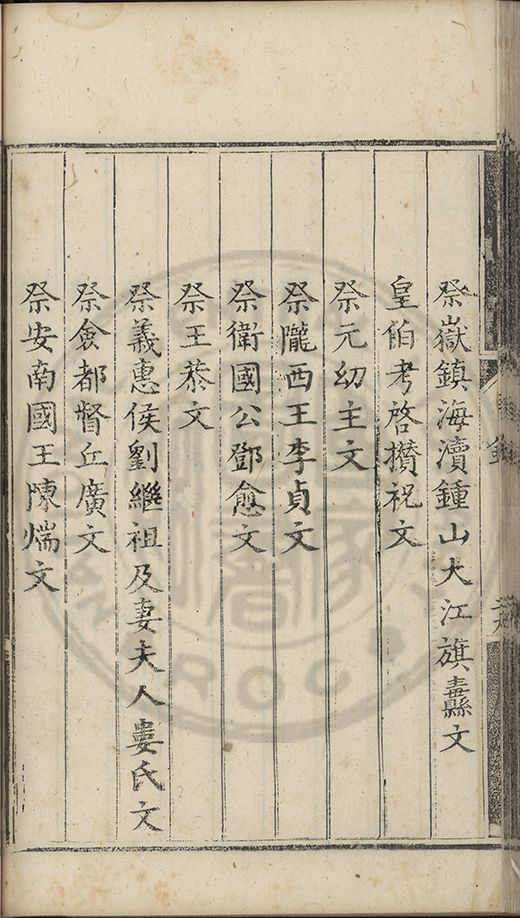 祭嶽鎮海瀆鍾山大江旗纛文
皇伯考啓攢祝文
祭元幼主文
祭隴西王李貞文
祭衛國公鄧愈文
祭王恭文
祭義惠侯劉繼祖及妻夫人婁氏文
祭僉都督丘廣文
祭安南國王陳煓文